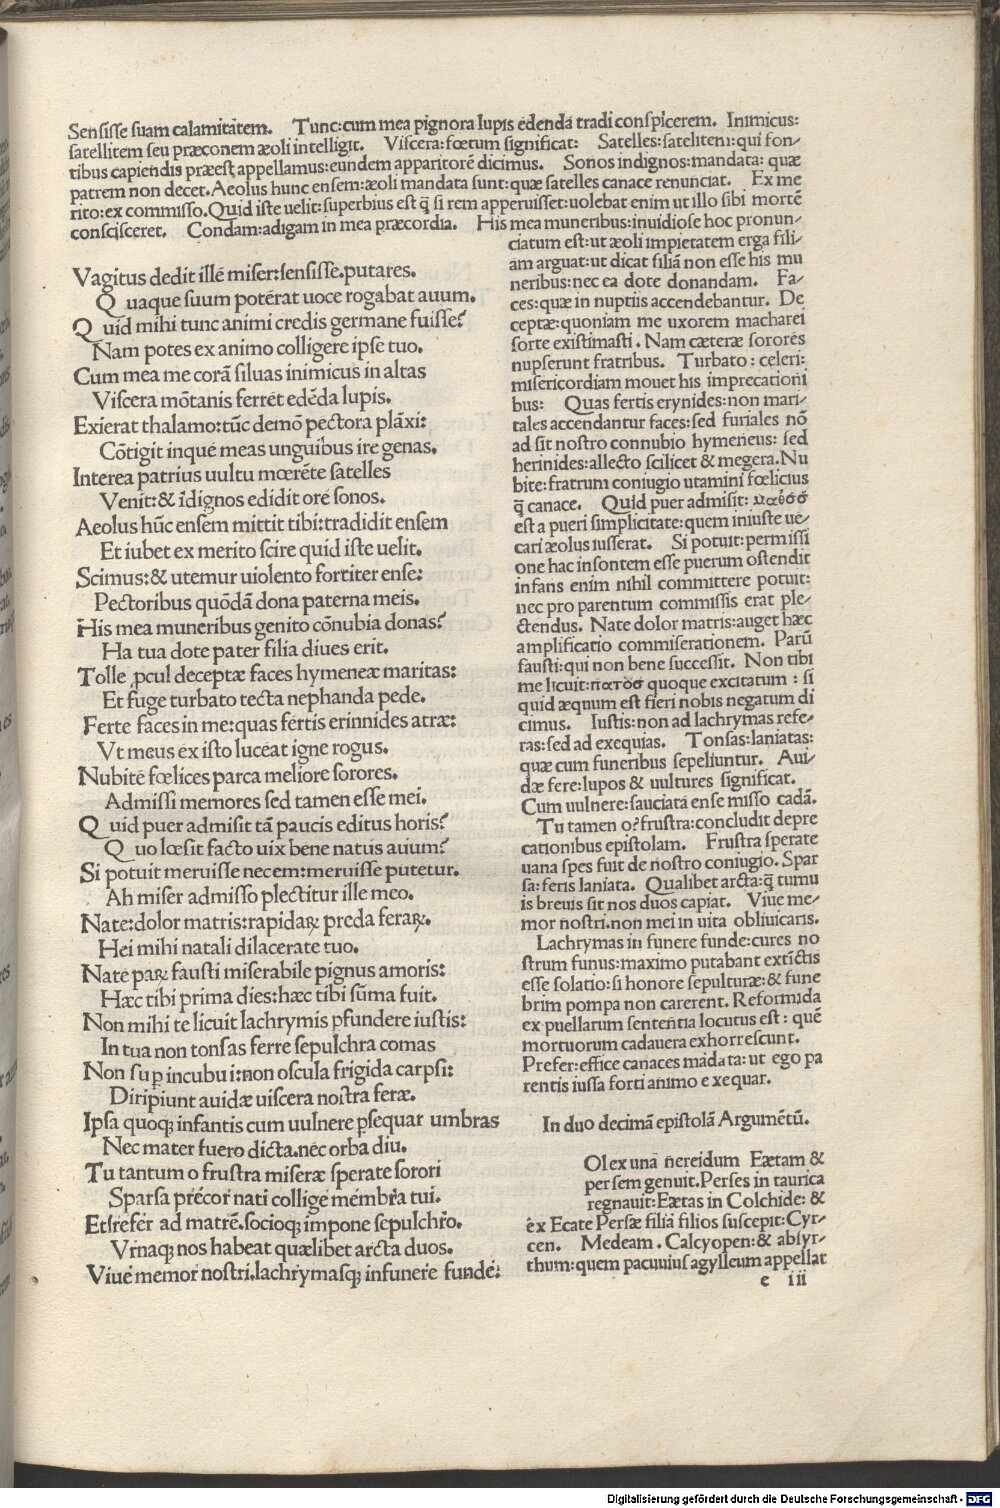 Sensisse suam calamitatem. Tunc:cum mea pignora lupis edenda tradi conspicerem. Inimicus:
satellitem seu præconem æoli intelligit. Viscera:fœtum significat: Satelles:satelitem:qui fon-
tibus capiendis præest appellamus:eundem apparitorē dicimus. Sonos indignos:mandata: quæ
patrem non decet.Aeolus hunc ensem:æoli mandata sunt:quæ satelles canace renunciat. Ex me
rito:ex commisso.Quid iste uelit:superbius est q̃ si rem apperuisset:uolebat enim ut illo sibi mortē
conscisceret. Condam:adigam in mea præcordia. His mea muneribus:inuidiose hoc pronun-
Vagitus dedit ille miser:sensisse.putares.
Q uaque suum poterat uoce rogabat auum.
Q uid mihi tunc animi credis germane fuisse?
Nam potes ex animo colligere ipse tuo.
Cum mea me corā siluas inimicus in altas
Viscera mōtanis ferret edēda lupis.
Exierat thalamo:tūc demō pectora plāxi:
Cōtigit inque meas unguibus ire genas.
Interea patrius uultu mœrēte satelles
Venit:& īdignos edidit ore sonos.
Aeolus hūc ensem mittit tibi:tradidit ensem
Et iubet ex merito scire quid iste uelit.
Scimus:& utemur uiolento fortiter ense:
Pectoribus quōdā dona paterna meis.
His mea muneribus genito cōnubia donas?
Ha tua dote pater filia diues erit.
Tolle ꝓcul deceptæ faces hymenæe maritas:
Et fuge turbato tecta nephanda pede.
Ferte faces in me:quas fertis erinnides atræ:
Vt meus ex isto luceat igne rogus.
Nubite fœlices parca meliore sorores.
Admissi memores sed tamen esse mei.
Q uid puer admisit tā paucis editus horis?
Q uo lœsit facto uix bene natus auium?
Si potuit meruisse necem:meruisse putetur.
Ah miser admisso plectitur ille meo.
Nate:dolor matris:rapidaꝝ preda feraꝝ.
Hei mihi natali dilacerate tuo.
Nate paꝝ fausti miserabile pignus amoris:
Hæc tibi prima dies:hæc tibi sūma fuit.
Non mihi te licuit lachrymis ꝑfundere iustis:
In tua non tonsas ferre sepulchra comas
Non suꝑ incubui:non oscula frigida carpsi:
Diripiunt auidæ uiscera nostra feræ.
Ipsa quoqꝫ infantis cum uulnere ꝑsequar umbras
Nec mater fuero dicta.nec orba diu.
Tu tantum o frustra miseræ sperate sorori
Sparsa precor nati collige membra tui.
Et refer ad matrē.socioqꝫ impone sepulchro.
Vrnaqꝫ nos habeat quælibet arcta duos.
Viue memor nostri.lachrymasqꝫ infunere funde:
ciatum est:ut æoli impietatem erga fili-
am arguat:ut dicat filiā non esse his mu
neribus:nec ea dote donandam. Fa-
ces:quæ in nuptiis accendebantur. De
ceptæ:quoniam me uxorem macharei
forte existimasti. Nam cæteræ sorores
nupserunt fratribus. Turbato: celeri:
misericordiam mouet his imprecationi
bus: Quas fertis erynides:non mari-
tales accendantur faces:sed furiales nō
ad sit nostro connubio hymeneus: sed
herinides:allecto scilicet & megera.Nu
bite:fratrum coniugio utamini fœlicius
q̃ canace. Quid puer admisit: παθοσ
est a pueri simplicitate:quem iniuste ue-
cari æolus iusserat. Si potuit:permissi
one hac insontem esse puerum ostendit
infans enim nihil committere potuit:
nec pro parentum commissis erat ple-
ctendus. Nate dolor matris:auget hæc
amplificatio commiserationem. Parū
fausti:qui non bene successit. Non tibi
me licuit:παθοσ quoque excitatum : si
quid æquum est fieri nobis negatum di
cimus. Iustis:non ad lachrymas refe-
ras:sed ad exequias. Tonsas:laniatas:
quæ cum funeribus sepeliuntur. Aui-
dæ fere:lupos & uultures significat.
Cum uulnere:sauciata ense misso cadā.
Tu tamen o?frustra:concludit depre
cationibus epistolam. Frustra sperate
uana spes fuit de nostro coniugio. Spar
sa:feris laniata. Qualibet arcta:q̃ tumu
is breuis sit nos duos capiat. Viue me-
mor nostri.non mei in uita obliuicaris.
Lachrymas in funere funde:cures no
strum funus:maximo putabant extīctis
esse solatio:si honore sepulturæ:& fune
brim pompa non carerent. Reformida
ex puellarum sententia locutus est: quē
mortuorum cadauera exhorrescunt.
Prefer:effice canaces mādata: ut ego pa
rentis iussa forti animo exequar.
In duo decimā epistolā Argumētū.
Olex unā nereidum Eætam &
persem genuit.Perses in taurica
regnauit:Eætas in Colchide: &
ex Ecate Persæ filiā filios suscepit:Cyr-
cen. Medeam. Calcyopen:& absyr-
thum:quem pacuuius agylleum appellat
e iii
Digitalisierung gefördert durch die Deutsche Forschungsgemeinschaft - DFG